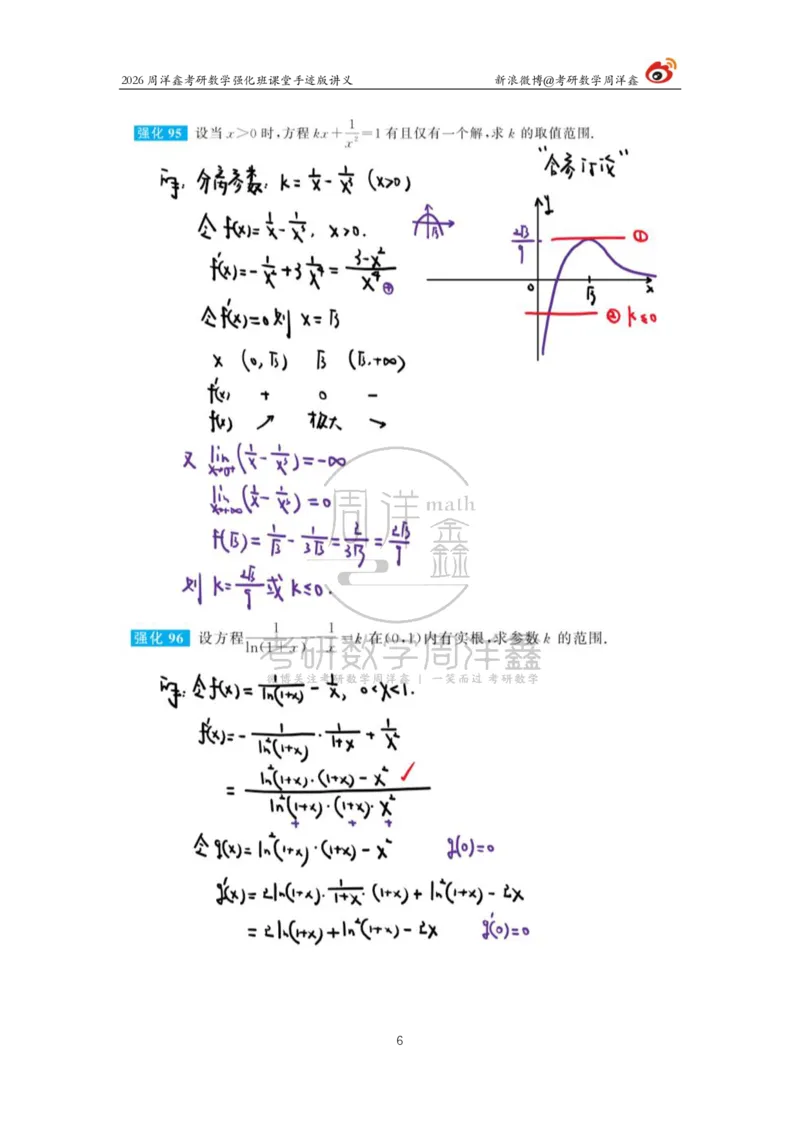 2026 周洋鑫考研数学强化班课堂手迹版讲义 新浪微博@考研数学周洋鑫
强化 95 设当 x>0 时,方程 kx+1/x²=1 有且仅有一个解,求 k 的取值范围.
"含参讨论"
解: 分离参数: k=1/x-1/x³ (x>0)
令 f(x)=1/x-1/x³, x>0.
f'(x)=-1/x²+3·1/x⁴=(3-x²)/x⁴ ⊕
令f'(x)=0 则 x=√3
x (0,√3) √3 (√3,+∞)
f'(x) + 0 -
f(x) ↗ 极大 ↘
又 lim x→0⁺ (1/x-1/x³)=-∞
lim x→+∞ (1/x-1/x³)=0
f(√3)=1/√3-1/(3√3)=2/(3√3)=2√3/9
则 k=2√3/9 或 k≤0.
√3
y
2√3/9
①
0
√3
x
② k≤0
周洋 math
鑫鑫
强化 96 设方程 1/ln(1+x)-1/x=k 在(0,1)内有实根,求参数 k 的范围.
考研数学周洋鑫
微博关注考研数学周洋鑫 | 一笑而过 考研数学
解: 令f(x)=1/ln(1+x)-1/x, 0<x<1.
f'(x)=-1/ln²(1+x)·1/(1+x)+1/x²
=(ln²(1+x)·(1+x)-x²)/(ln²(1+x)·(1+x)·x²) ✓
+ + +
令 g(x)=ln²(1+x)·(1+x)-x² g(0)=0
g'(x)=2ln(1+x)·1/(1+x)·(1+x)+ln²(1+x)-2x
=2ln(1+x)+ln²(1+x)-2x g'(0)=0
6